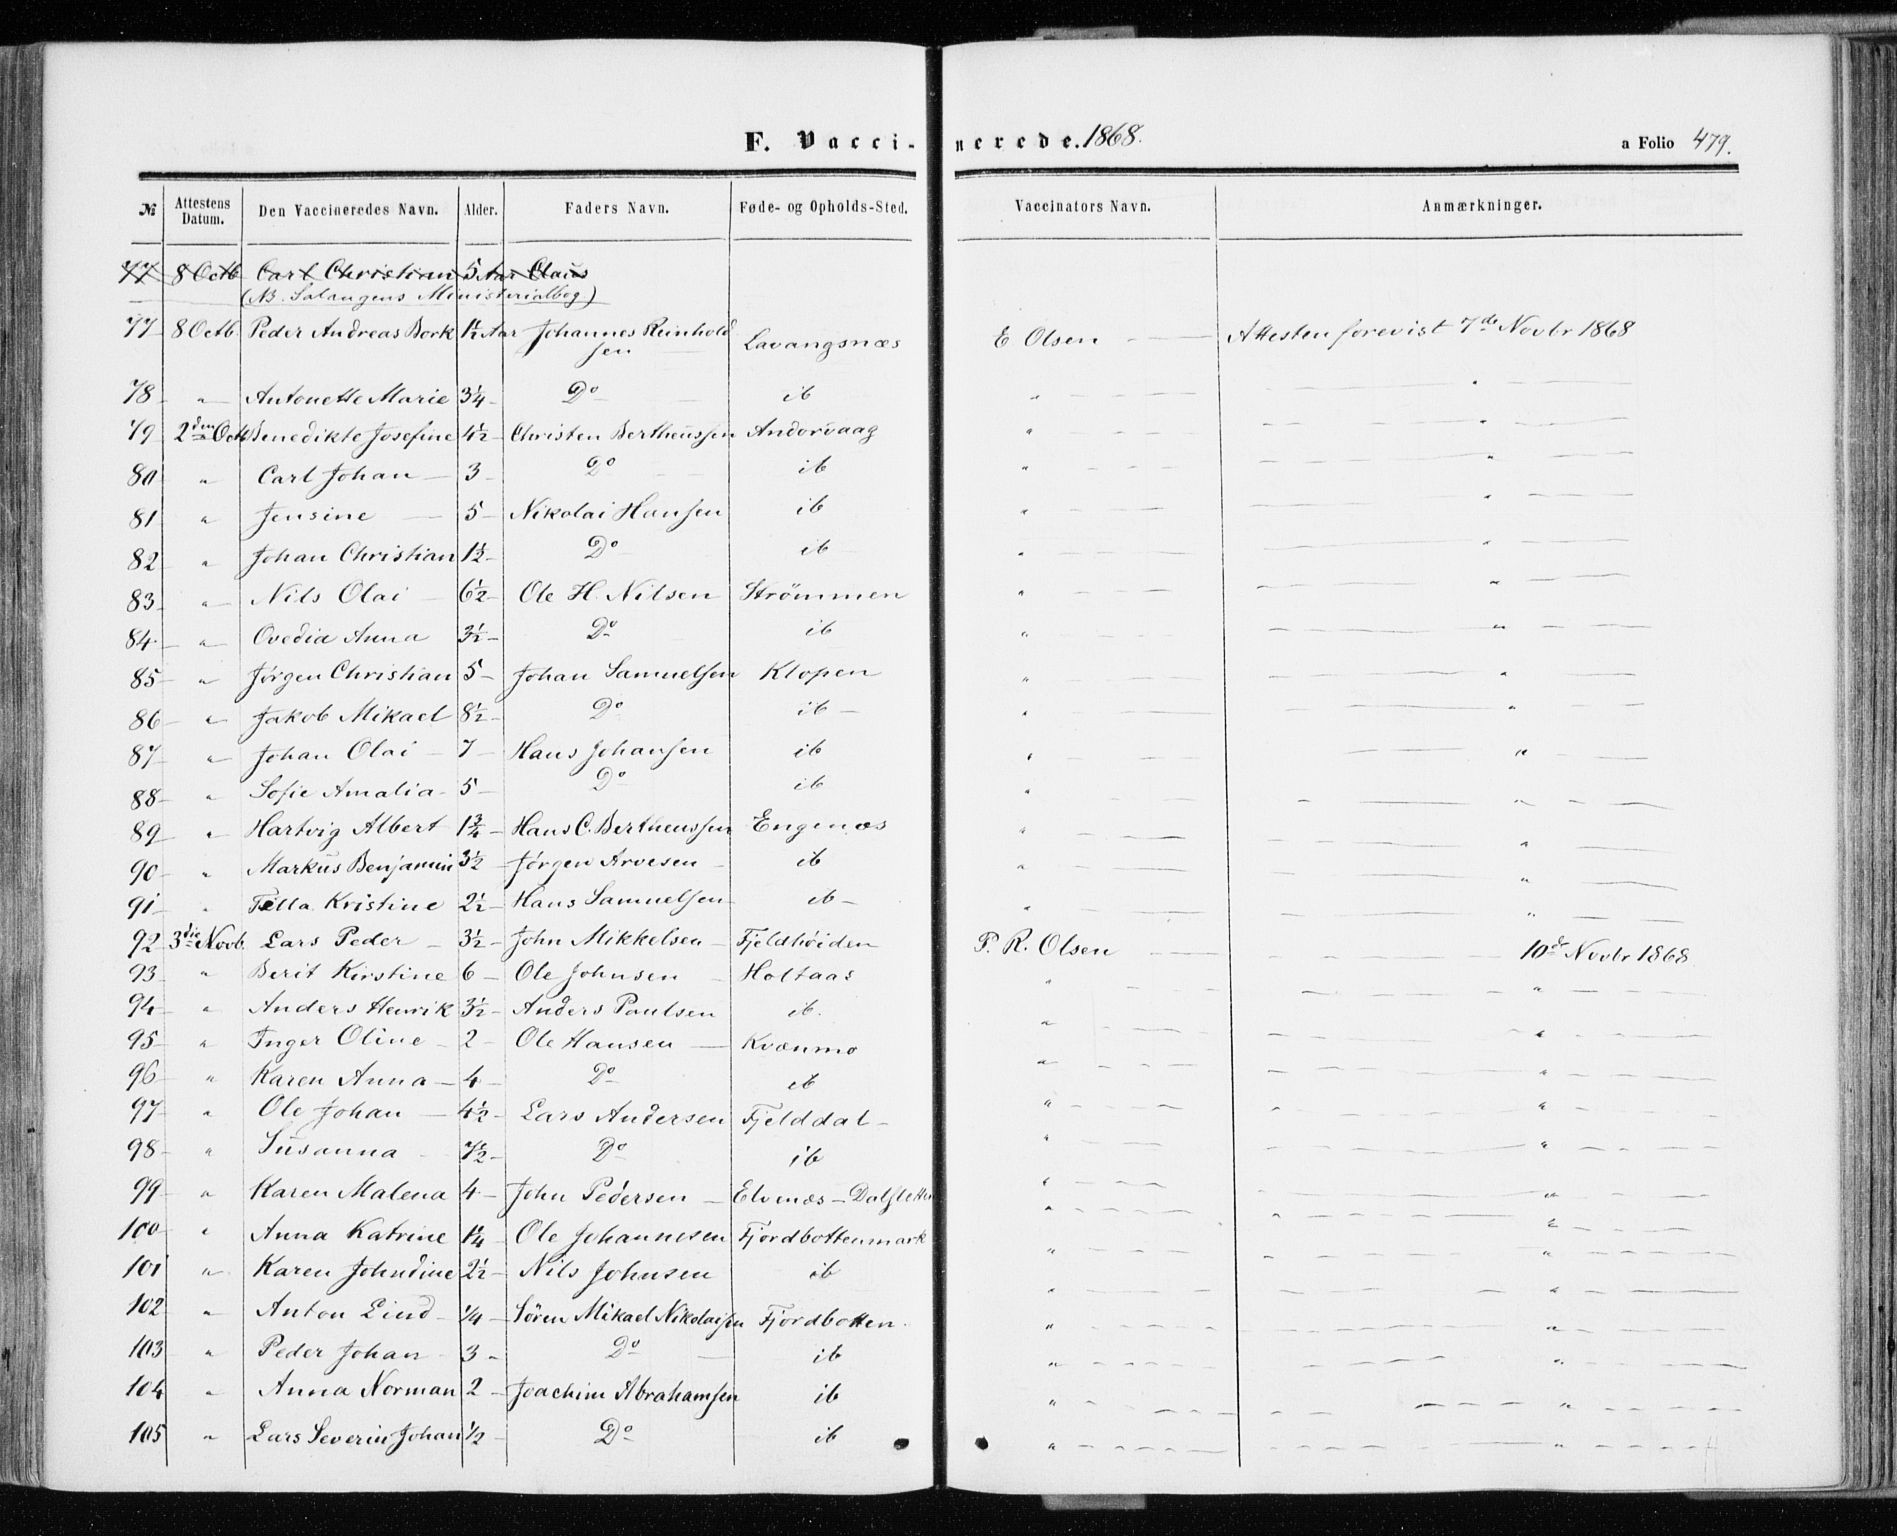 F. Vaccinerede. 1868. a Folio 479.
№ | Attestens Datum. | Den Vaccineredes Navn. | Alder. | Faders Navn. | Føde- og Opholds-Sted. | Vaccinators Navn. | Anmærkninger.
77 8 Octb Carl Christian 5 Aar Claus
(NB. Salangens Ministerialbog)
77 8 Octb. Peder Andreas Bork 1½ Aar Johannes Reinholdsen Lavangsnæs E Olsen Attesten forevist 7de Novbr 1868
78 " Antonette Marie 3¼ Do ib " "
79 2den Octb Benedikte Josefine 4½ Christen Bertheussen Andorvaag " "
80 " Carl Johan 3 Do ib " "
81 " Jensine 5 Nikolai Hansen ib " "
82 " Johan Christian 1½ Do ib " "
83 " Nils Olai 6½ Ole H. Nilsen Strömmen " "
84 " Ovedia Anna 3½ Do ib " "
85 " Jørgen Christian 5 Johan Samuelsen Klopen " "
86 " Jakob Mikael 8½ Do ib " "
87 " Johan Olai 7 Hans Johansen ib " "
88 " Sofie Amalia 5 Do ib " "
89 " Hartvig Albert 1¾ Hans C. Bertheussen Engenæs " "
90 " Markus Benjamin 3½ Jørgen Arvesen ib " "
91 " Kristine 2½ Hans Samuelsen ib " "
92 3die Novb. Lars Peder 3½ John Mikkelsen Fjeldhöiden P. R. Olsen 10de Novbr 1868
93 " Berit Kirstine 6 Ole Johnsen Holtaas " "
94 " Anders Henrik 3½ Anders Paulsen ib. " "
95 " Inger Oline 2 Ole Hansen Kvænmo " "
96 " Karen Anna 4 Do ib " "
97 " Ole Johan 4½ Lars Andersen Fjelddal " "
98 " Susanna 7½ Do ib " "
99 " Karen Malena 4 John Pedersen Elvenæs - " "
100 " Anna Katrine 1¼ Ole Johannesen Fjordbottenmark " "
101 " Karen Johndine 2½ Nils Johnsen ib " "
102 " Anton Lind ¼ Sören Mikael Nikolaisen Fjordbotten " "
103 " Peder Johan 3 Do ib " "
104 " Anna Norman 2 Joachim Abrahamsen ib " "
105 " Lars Severin Johan ½ Do ib " "